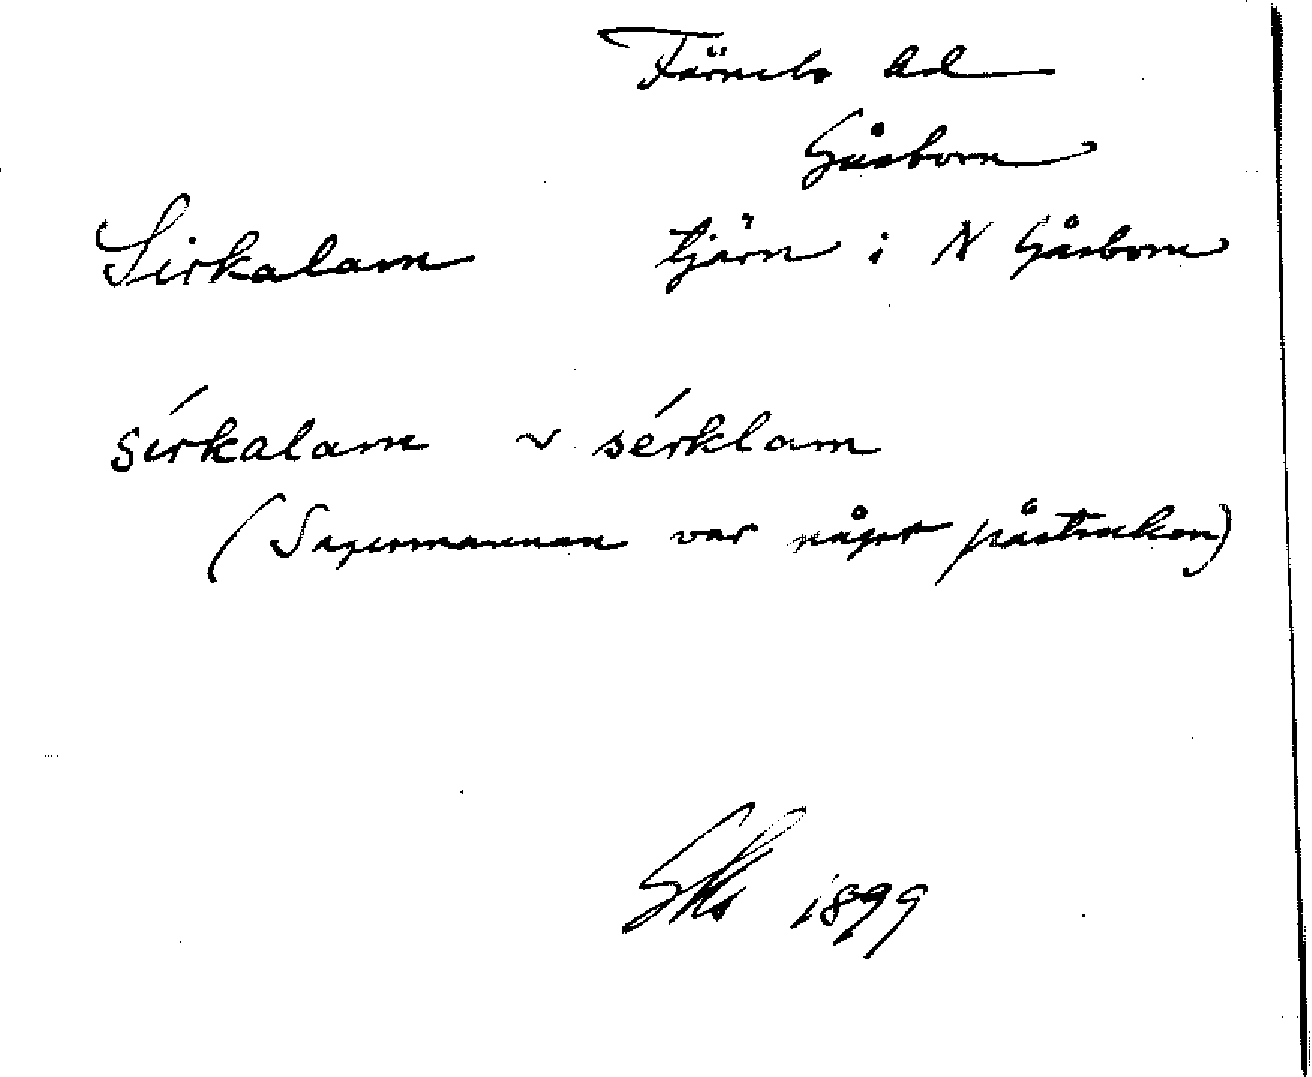 Färnebo hd
Gåsborn
Sirkalam tjärn i N Gåsborn
sírkalam ~ sérklam
(Sagesmannen var något påstrucken)
1899